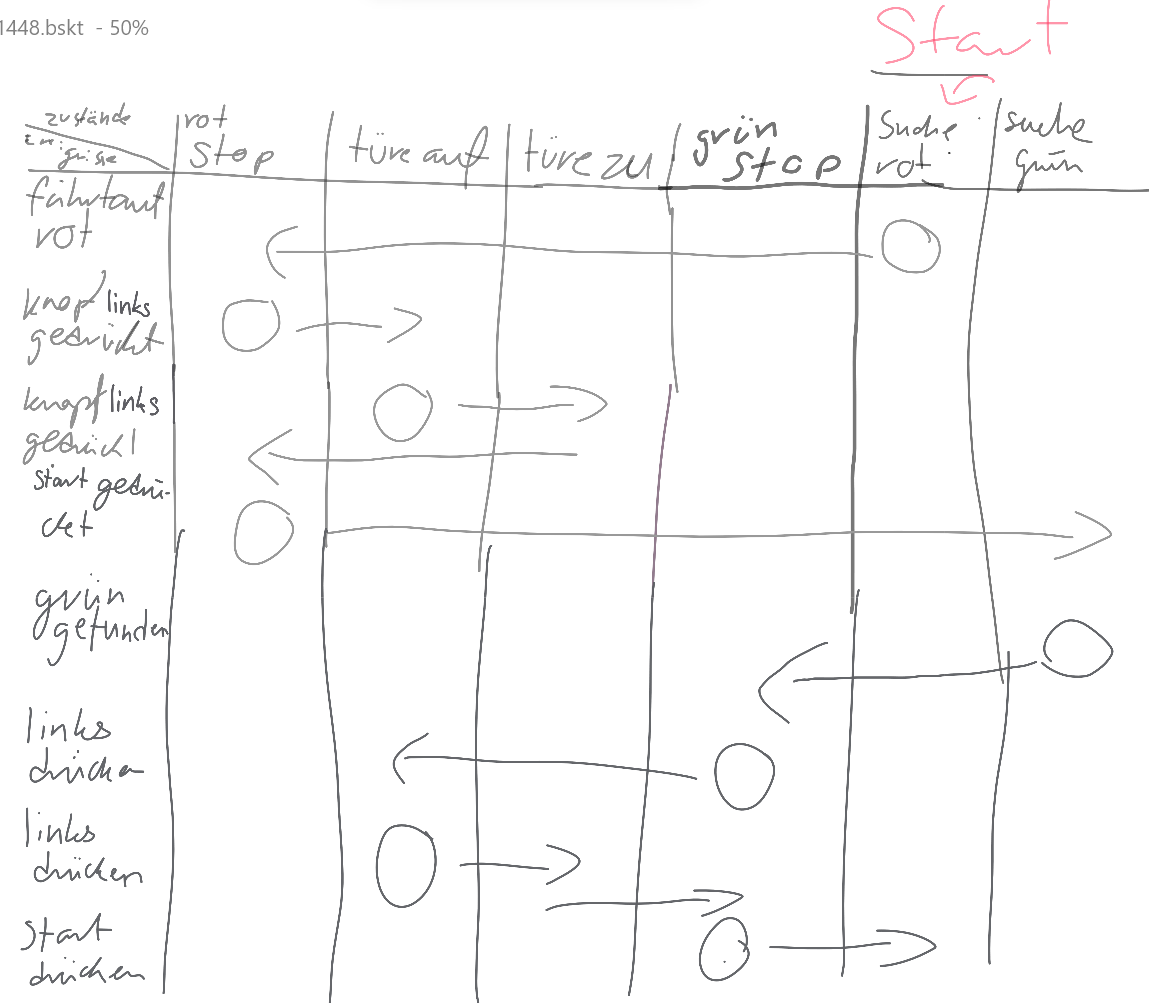 1448.bskt - 50%
Start
zustände
Ereignisse
rot
stop
türe auf
türe zu
grün
stop
Suche
rot
suche
grün
fährt auf
rot
knopf links
gedrückt
knopf links
gedrückt
start gedrü-
cket
grün
gefunden
links
drücken
links
drücken
start
drücken